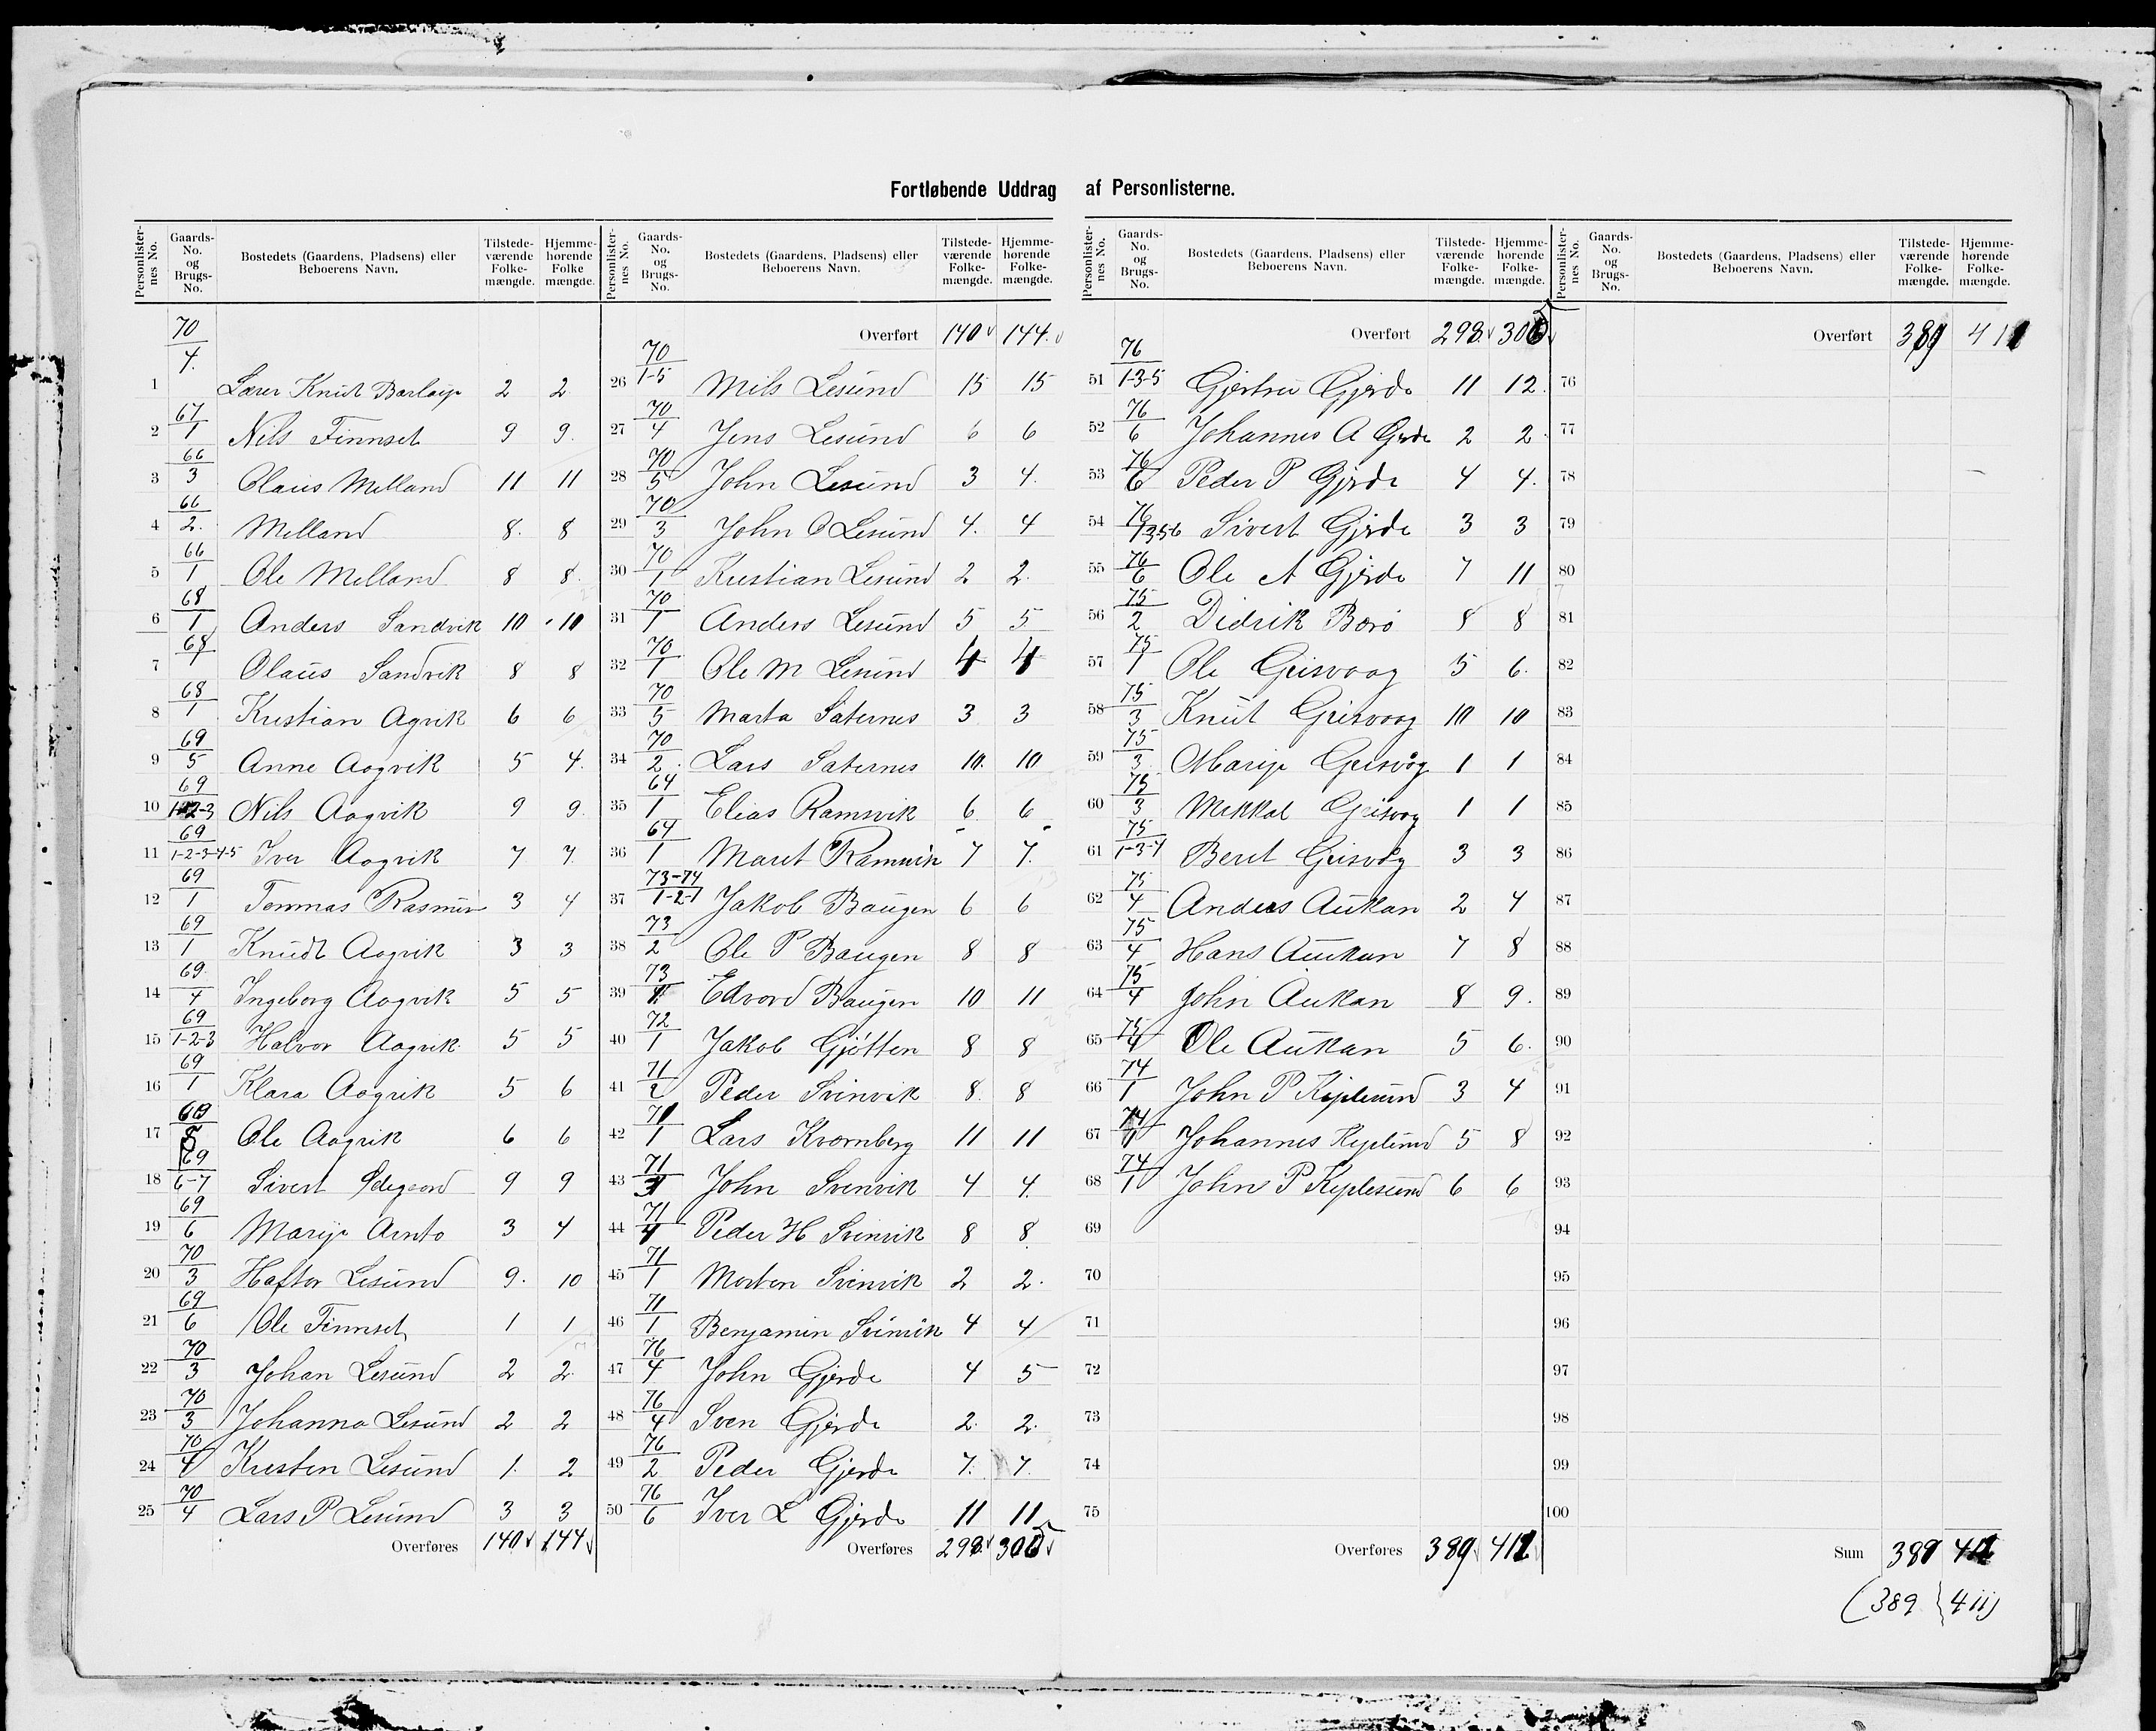 Fortløbende Uddrag af Personlisterne.
Personlister-nes No. | Gaards-No. og Brugs-No. | Bostedets (Gaardens, Pladsens) eller Beboerens Navn. | Tilstede-værende Folke-mængde. | Hjemme-hørende Folke mængde.
1 70/4. Lærer Knut 2 2
2 67/1 Nils Finnset 9 9.
3 66/3 Olaus Melland 11 11
4 66/2. Melland 8. 8
5 66/1 Ole Melland 8 8.
6 68/1 Anders Sandvik 10 10
7 68/1 Olaus Sandvik 8 8
8 68/1 Kristian Agvik 6 6
9 69/5 Anne Aagvik 5 4.
10 69/1-2-3 Nils Aagvik 9 9
11 69/1-2-3-4-5 Iver Aagvik 7 7.
12 69/1 Tommas Rasmus 3 4
13 69/1 Knudt Aagvik 3 3
14 69/4 Ingeborg Aagvik 5 5
15 69/1-2-3 Halvor Aagvik 5 5
16 69/1 Klara Aagvik 5 6
17 Ole Aagvik 6 6
18 69/6-7 Sivert Ødegaard 9 9
19 69/6 Marije Arnto 3 4
20 70/3 Haftor Lesund 9. 10
21 69/6 Ole Finnset 1 1
22 70/3 Johan Lesund 2 2
23 70/3 Johanna Lesund 2 2
24 70/4 Kristen Lesund 1. 2
25 70/4 Lars P Lesund 3 3
Overføres 140 144
Personlister-nes No. | Gaards-No. og Brugs-No. | Bostedets (Gaardens, Pladsens) eller Beboerens Navn. | Tilstede-værende Folke-mængde. | Hjemme-hørende Folke-mængde.
Overført 140 144.
26 70/1-5 Nils Lesund 15 15
27 70/4 Jens Lesund 6 6
28 70/5 John Lesund 3 4.
29 70/3 John O Lesund 4. 4
30 70/1 Kristian Lesund 2 2.
31 70/1 Anders Lesund 5 5
32 70/1 Ole M Lesund 4 4
33 70/5 Marta Saternes 3 3
34 70/2. Lars Saternes 10. 10
35 64/1 Elias Ramsvik 6 6
36 64/1 Marit Ramsvik 7 7.
37 73-74/1-2-1 Jakob Baugen 6 6
38 73/2 Ole P Baugen 8 8
39 73/1 Edvard Baugen 10 11
40 72/1 Jakob Gjøtten 8 8
41 71/2 Peder Svinvik 8 8
42 71/1 Lars Kvernberg 11 11
43 71/3 John Svinvik 4 4.
44 71/4 Peder H Svinvik 8 8
45 71/1 Morten Svinvik 2 2.
46 71/1 Benjamin Svinvik 4 4
47 76/4 John Gjerde 4 5
48 76/4 Sven Gjerde 2. 2.
49 76/2 Peder Gjerde 7. 7
50 76/6 Iver L Gjerde 11 11
Overføres 298 305
Personlister-nes No. | Gaards-No. og Brugs-No. | Bostedets (Gaardens, Pladsens) eller Beboerens Navn. | Tilstede-værende Folke-mængde. | Hjemme-hørende Folke-mængde.
Overført 298 305
51 76/1-3-5 Gjertru Gjerde 11 12.
52 76/6 Johannes A Gjerde 2 2.
53 76/6 Peder P Gjerde 4 4.
54 76/1356 Sivert Gjerde 3 3
55 76/6 Ole A Gjerde 7 11
56 75/2 Didrik Børø 8 8
57 75/1 Ole Geisvaag 5 6.
58 75/3 Knut Geisvaag 10 10
59 75/3 Marije Geisvåg 1 1
60 75/3 Mikkal Geisvag 1 1
61 75/1-3-4 Beret Geisvåg 3 3
62 75/4 Anders Aukan 2 4
63 75/4 Hans Aukan 7 8
64 75/4 John Aukan 8 9.
65 75/4 Ole Aukan 5 6.
66 74/1 John P Kjplesund 3 4
67 74/1 Johannes Kjplesund 5 8
68 74/1 John P Kjplesund 6 6
69
70
71
72
73
74
75
Overføres 389 411
Personlister-nes No. | Gaards-No. og Brugs-No. | Bostedets (Gaardens, Pladsens) eller Beboerens Navn. | Tilstede-værende Folke-mængde. | Hjemme-hørende Folke-mængde.
Overført 389 411
76
77
78
79
80
81
82
83
84
85
86
87
88
89
90
91
92
93
94
95
96
97
98
99
100
Sum 389 411
(389 411)